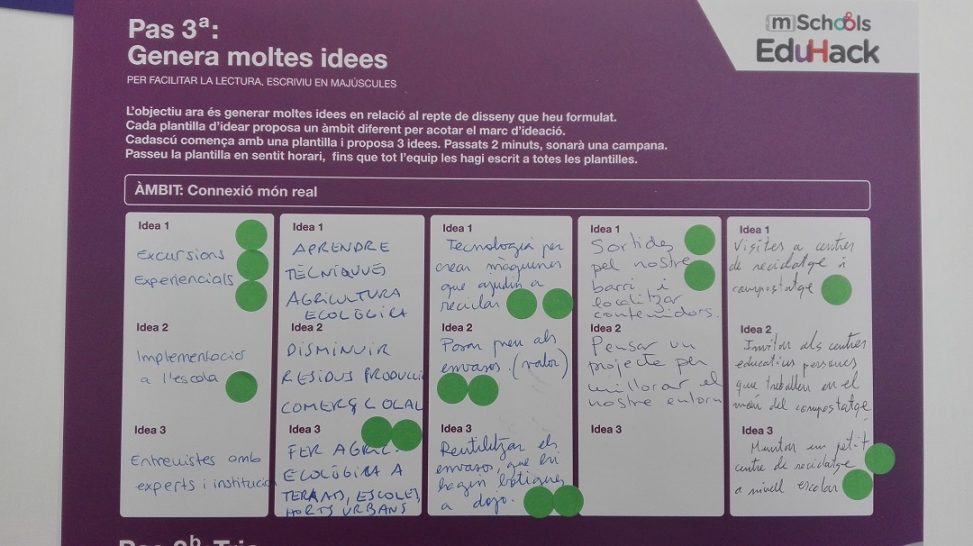 Pas 3ª:
Genera moltes idees
PER FACILITAR LA LECTURA, ESCRIVIU EN MAJÚSCULES
mSchools
EduHack
L'objectiu ara és generar moltes idees en relació al repte de disseny que heu formulat.
Cada plantilla d'idear proposa un àmbit diferent per acotar el marc d'ideació.
Cadascú comença amb una plantilla i proposa 3 idees. Passats 2 minuts, sonarà una campana.
Passeu la plantilla en sentit horari, fins que tot l'equip les hagi escrit a totes les plantilles.
ÀMBIT: Connexió món real
Idea 1
Excursions
Experiencials
Idea 2
Implementació
a l'escola
Idea 3
Entrevistes amb
experts i institucio
Idea 1
APRENDRE
TÈCNIQUES
AGRICULTURA
ECOLÒGICA
Idea 2
DISMINUIR
RESIDUS PRODUCCI
COMERÇ LOCAL
Idea 3
FER AGRIC.
ECOLÒGICA A
TERRATS, ESCOLES,
HORTS URBANS
Idea 1
Tecnologia per
crear màquines
que ajudin a
reciclar
Idea 2
Posar preu als
envasos. (valor)
Idea 3
Reutilitzar els
envasos, que hi
hagin botigues
a dojo.
Idea 1
Sortides
pel nostre
barri i
localitzar
contenidors.
Idea 2
Pensar un
projecte per
millorar el
nostre entorn
Idea 3
Idea 1
Visites a centres
de reciclatge i
compostatge
Idea 2
Invitar als centres
educatius persones
que treballen en el
món del compostatge
Idea 3
Muntar un petit
centre de reciclatge
a nivell escolar